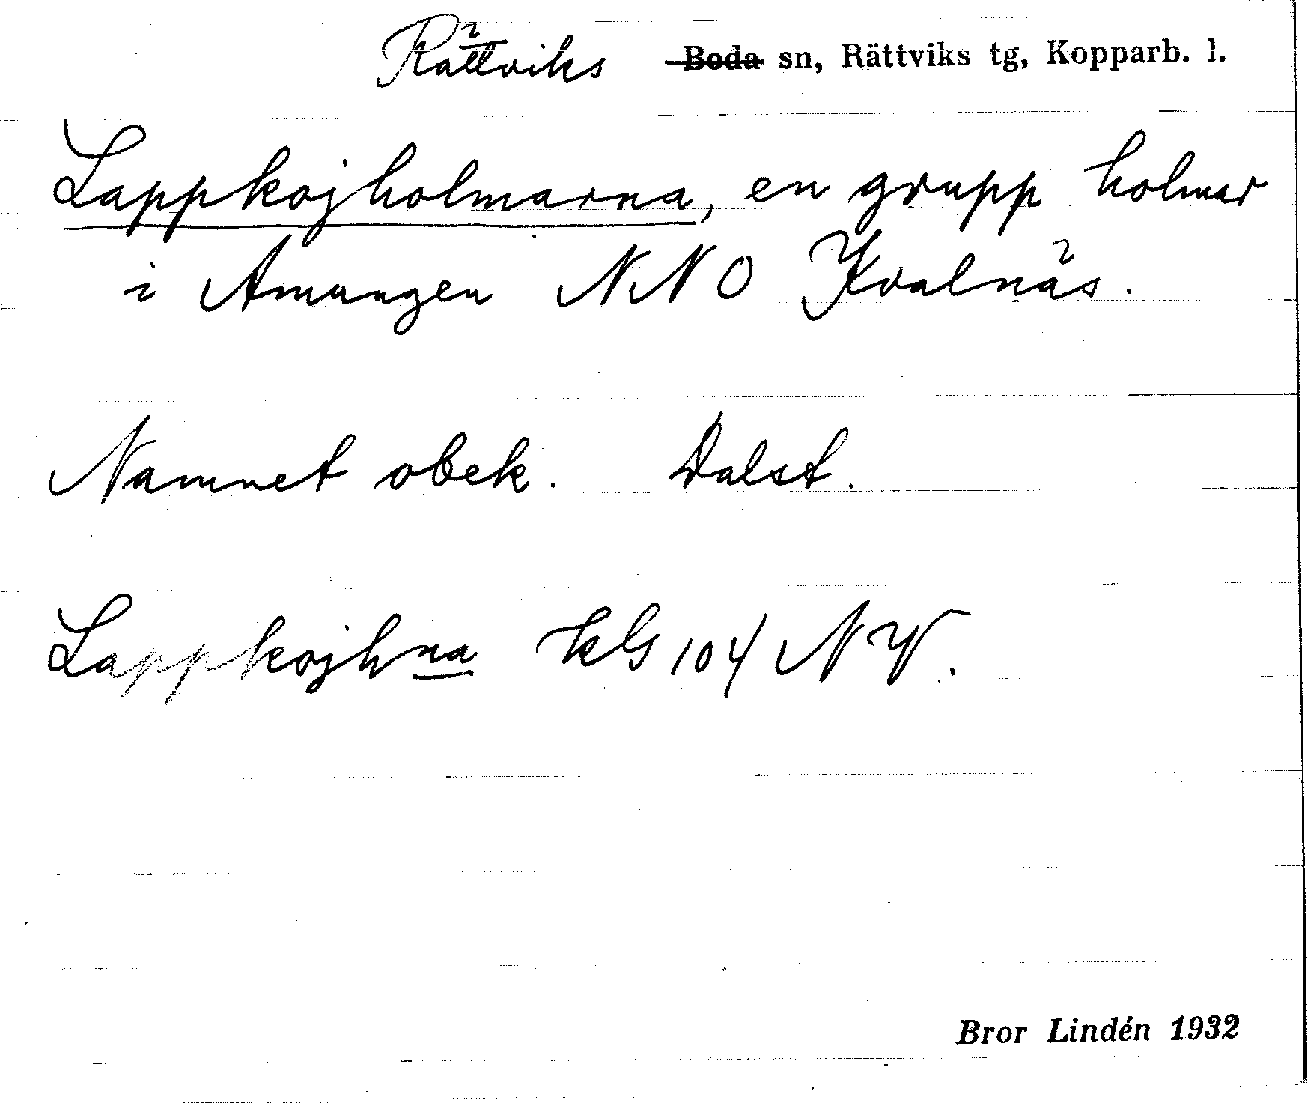 Rättviks ~~Boda~~ sn, Rättviks tg, Kopparb. l.
Lappkojholmarna, en grupp holmar
i Amungen NNO Kvalnäs.
Namnet obek. Dalst.
Lappkojhna kbl 104 NV.
Bror Lindén 1932